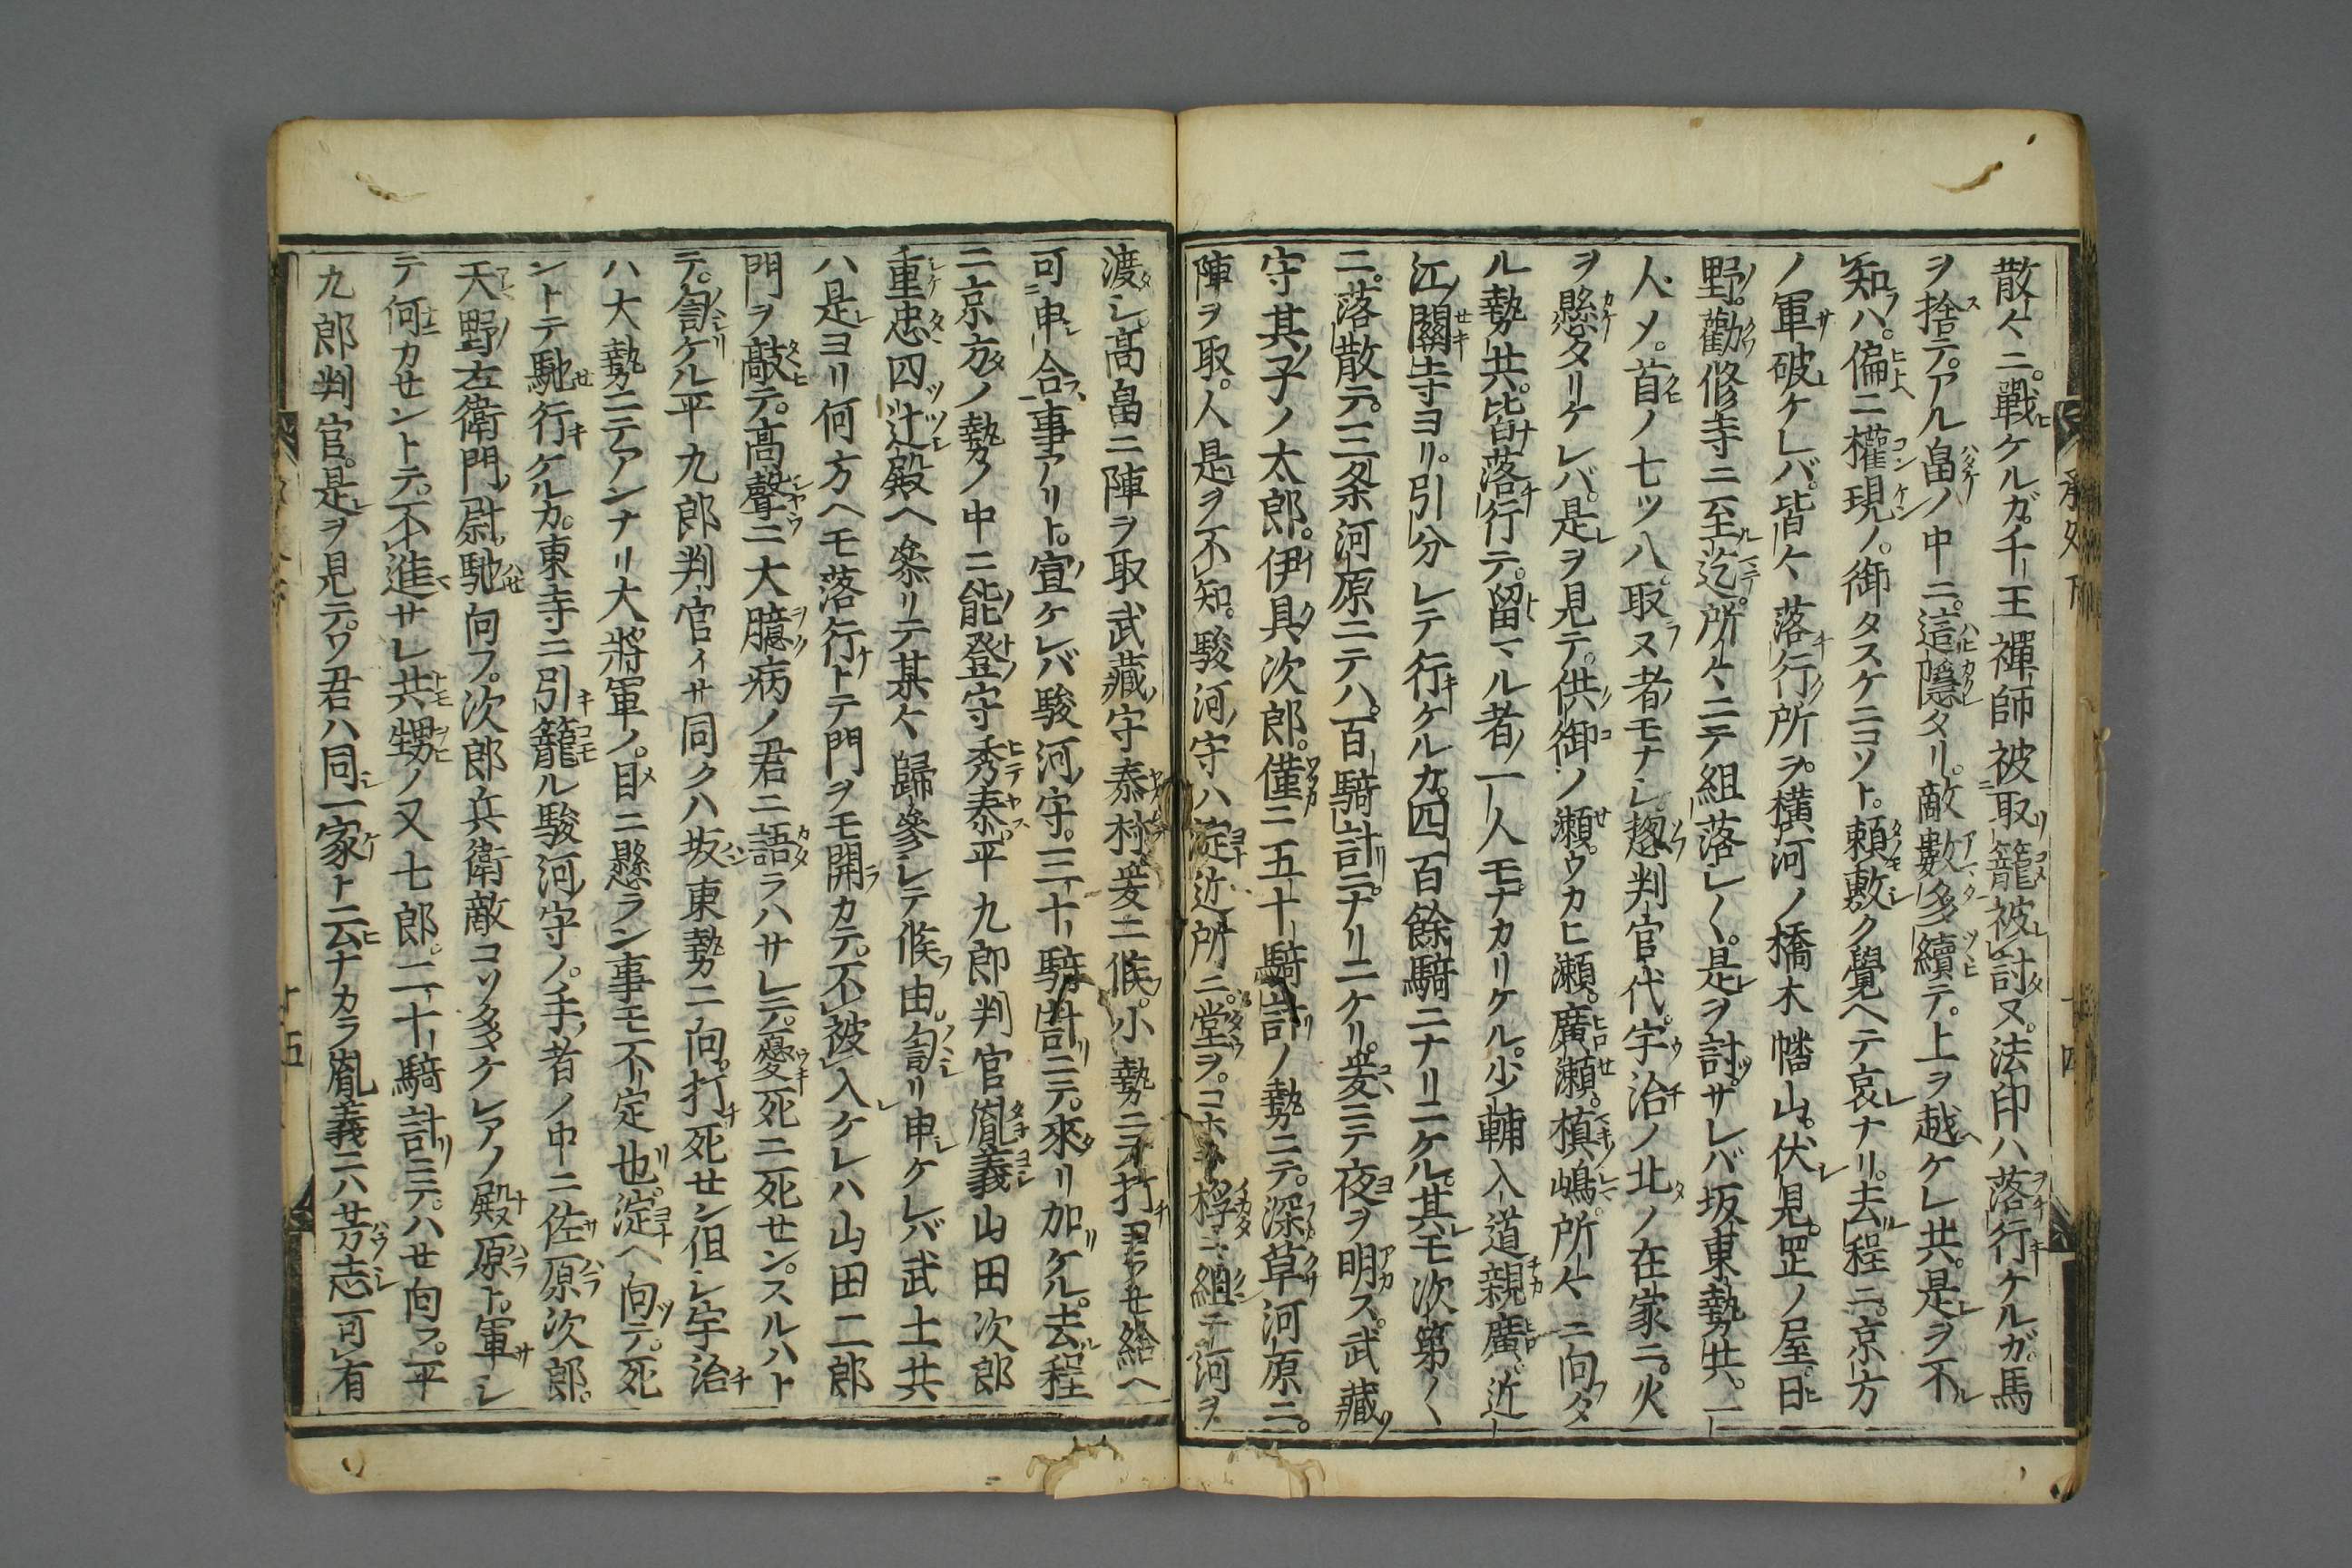 散々ニ。戰ケルガ。千王禪師被取籠被討ヌ。法印ハ落行ケルガ。馬
ヲ捨テ。アル畠ノ中ニ。這隱タリ。敵數多續テ。上ヲ越ケレ共。是ヲ不
知ハ。偏ニ權現ノ。御タスケニコソト。頼敷ク覺ヘテ哀ナリ。去程ニ。京方
ノ軍破ケレバ。皆々落行所ヲ。橫河ノ橋木幡山。伏見。岡ノ屋。日
野。勸修寺ニ至迄。所々ニテ組落シ〱。是ヲ討。サレバ坂東勢共。一
人〆。首ノ七ツ八取ヌ者モナシ。趐判官代。宇治ノ北ノ在家ニ。火
ヲ懸タリケレバ。是ヲ見テ。供御ノ瀬。ウカヒ瀬。廣瀬。槙嶋。所々ニ向タ
ル勢共。皆落行テ。留マル者一人モナカリケル。少輔入道親廣。近
江關寺ヨリ。引分レテ行ケルカ。四百餘騎ニナリニケル。其モ次第〱
ニ。落散テ。三条河原ニテハ。百騎計ニナリニケリ。爰ニテ夜ヲ明ス。武藏
守其子ノ太郎。伊具次郎。僅ニ五十騎計ノ勢ニテ。深草河原ニ。
陣ヲ取。人是ヲ不知。駿河守ハ淀近所ニ。堂ヲ。コホシ桴ニ組テ河ヲ
渡シ。髙畠ニ陣ヲ取武藏守泰村爰ニ候。小勢ニテ打ヨラせ給ヘ
可申合事アリト。宣ケレバ駿河守。三十騎計ニテ。來リ加ケル。去程
ニ京方ノ勢ノ中ニ能登守秀泰。平九郎判官胤義山田次郎
重忠四辻殿ヘ參リテ某々歸參シテ候由。訇リ申ケレバ武士共
ハ是ヨリ何方ヘモ落行トテ門ヲモ開カテ。不被入ケレハ山田二郎
門ヲ敲テ。髙聲ニ大臆病ノ君ニ語ラハサレテ。憂死ニ死せン。スルハト
テ。訇ケル平九郎判官イサ同クハ坂東勢ニ向。打死せン但シ宇治
ハ大勢ニテアンナリ大將軍ノ。目ニ懸ラン事モ不定也。淀ヘ向テ。死
ントテ馳行ケルカ。東寺ニ引籠ル駿河守ノ。手者ノ中ニ佐原次郎。
天野左衛門尉。馳向フ。次郎兵衛敵コソ多ケレアノ殿原ト。軍シ
テ何カせントテ。不進サレ共甥ノ又七郎。二十騎計ニテ。ハせ向フ。平
九郎判官。是ヲ見テ。ワ君ハ同一家ト云ナカラ胤義ニハ芳志可有